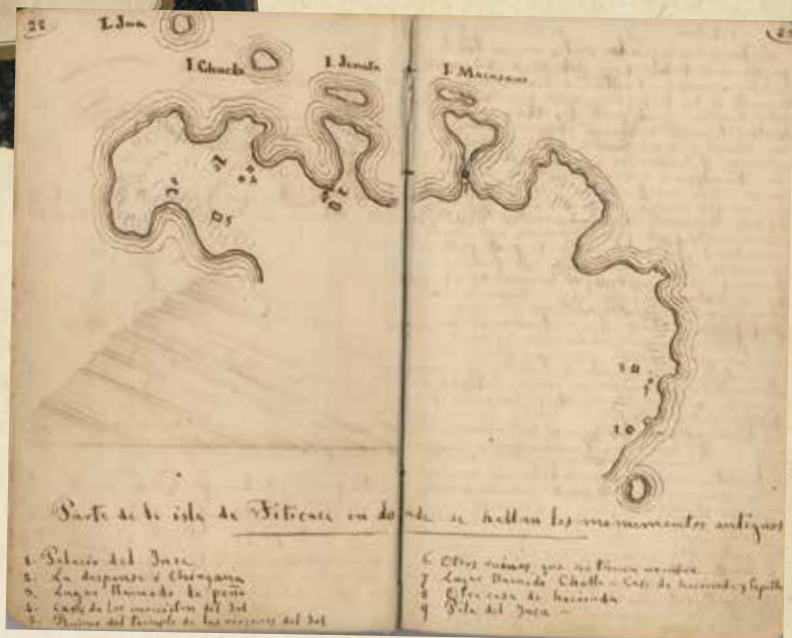 28
I. Chuclo
Parte de la isla de Titicaca en donde se hallan los monumentos antiguos
1. Palacio del Inca
2. La despensa ó Chingana
3. Lugar llamado la peña
4. Casa de los ministros del Sol
5. Ruinas del templo de las virgenes del Sol
6 Otras ruinas que no tienen nombre
7 Lugar llamado Challa - Casa de hacienda y
8 Otra casa de hacienda
9 Pila del Inca -